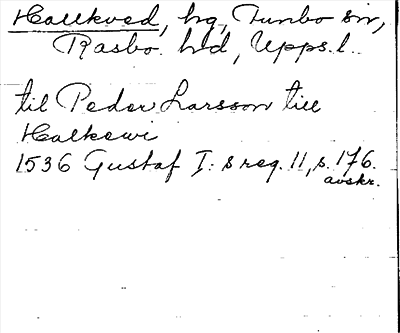 Hallkved, hg, Funbo sn,
Rasbo hd, Upps.l.
til Peder Larsson till
Halkewi
1536 Gustaf I:s reg. 11, s. 176.
avskr.